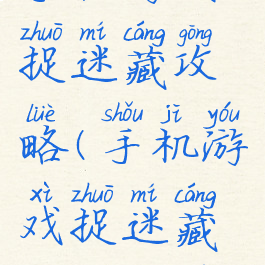 zhuō mí cáng gōng
捉迷藏攻
lüè shǒu jī yóu
略(手机游
xì zhuō mí cáng
戏捉迷藏